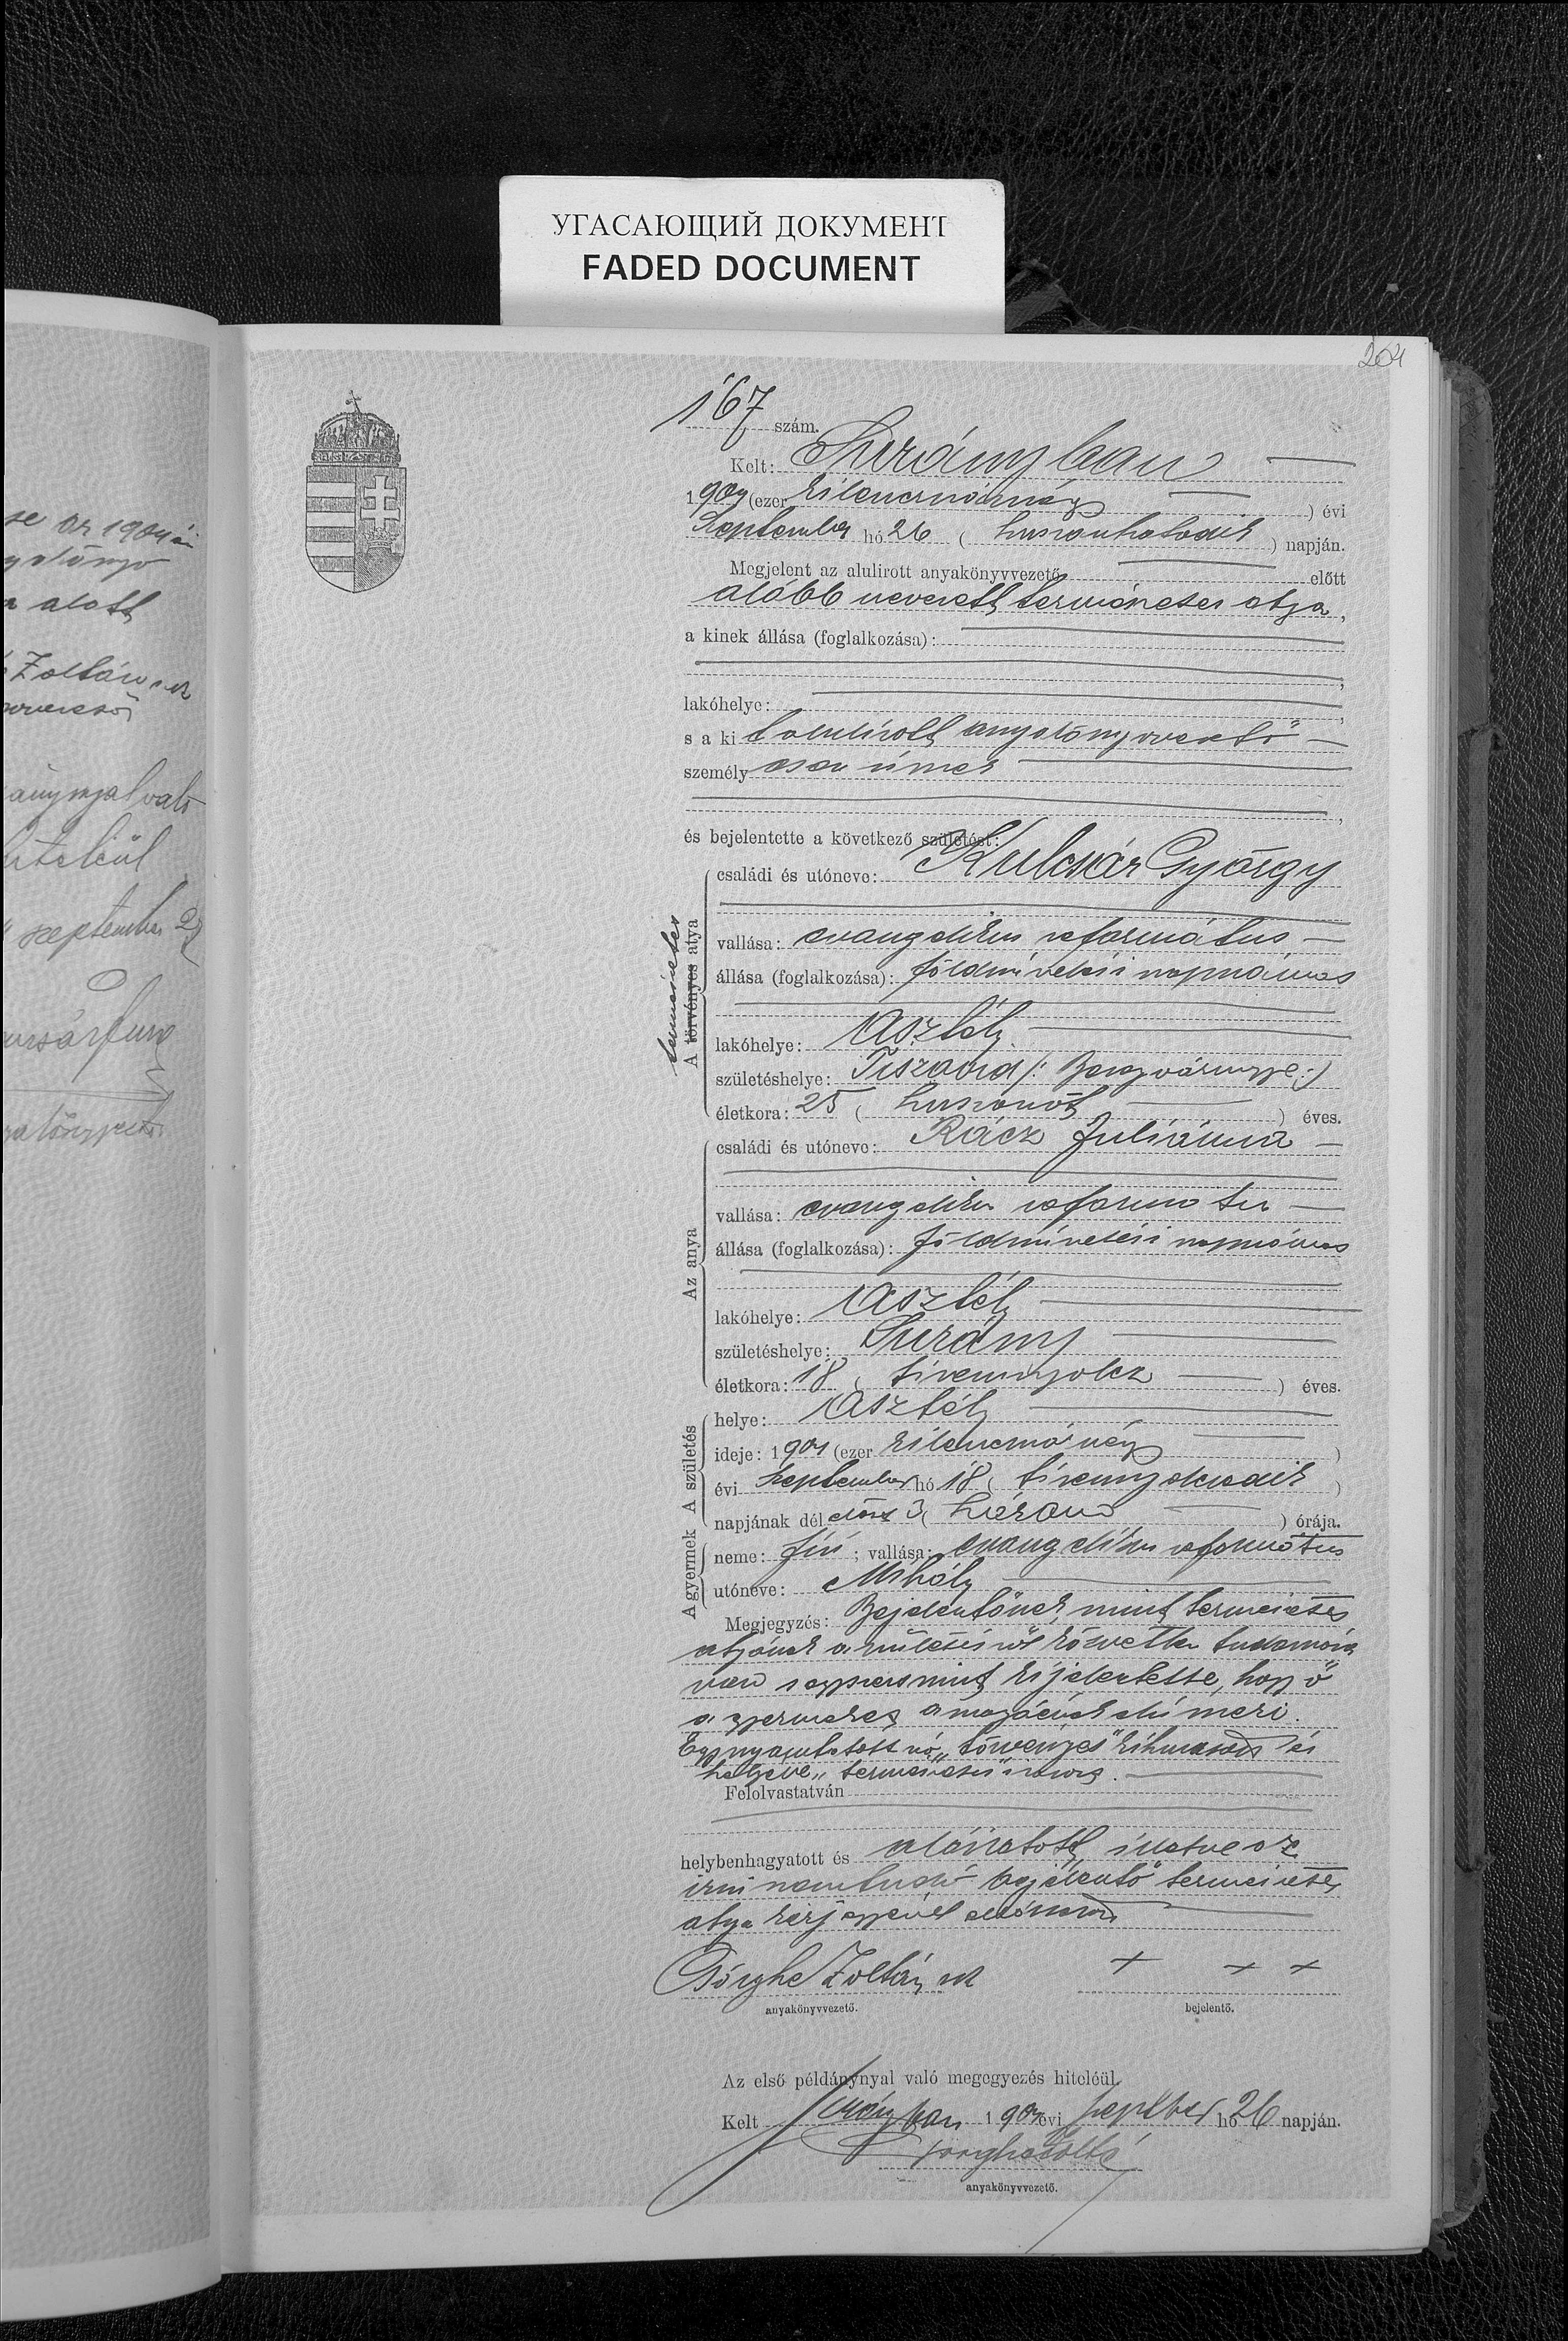 УГАСАЮЩИЙ ДОКУМЕНТ
FADED DOCUMENT
204
167 szám.
Kelt: Surányban
1904 (ezer kilenczszáznégy) évi
September hó 26 (huszonhatodik) napján.
Megjelent az alulirott anyakönyvvezető előtt
alább nevezett természetes atya,
a kinek állása (foglalkozása):
lakóhelye:
s a ki t alulírott anyakönyvvezető
személyesen ismer
és bejelentette a következő születést:
természetes
A törvényes atya
családi és utóneve: Kulcsár György
vallása: evangelikus református
állása (foglalkozása): földmívelési napszámos
lakóhelye: Asztély
születéshelye: Tiszavid (: Bereg vármegye :)
életkora: 25 (huszonöt) éves.
Az anya
családi és utóneve: Rácz Juliánna
vallása: evangelikus református
állása (foglalkozása): földmívelési napszámos
lakóhelye: Asztély
születéshelye: Surány
életkora: 18 (tizennyolcz) éves.
A születés
helye: Asztély
ideje: 1904 (ezer kilenczszáznégy)
évi September hó 18 (tizennyolczadik)
napjának dél előtt 3 (három) órája.
A gyermek
neme: fiú; vallása: evangelikus református
utóneve: Mihály
Megjegyzés: Bejelentőnek, mint természetes
atyának a születésről közvetlen tudomása
van s egyszersmind kijelentette, hogy ő
a gyermeket a magáénak elismeri.
Egy nyomtatott szó „törvényes" kihúzatott és
helyébe „természetes" iratott.
Felolvastatván
helybenhagyatott és aláíratott, illetve az
írni nem tudó bejelentő természetes
atya kézjegyével elláttatott
Görghe Zoltán sk
+ + +
anyakönyvvezető.
bejelentő.
Az első példánynyal való megegyezés hiteléül.
Kelt Surányban 1904 évi septber hó 26 napján.
anyakönyvvezető.
se az 1904 
alatt
Zoltán sk
hiteléül
september